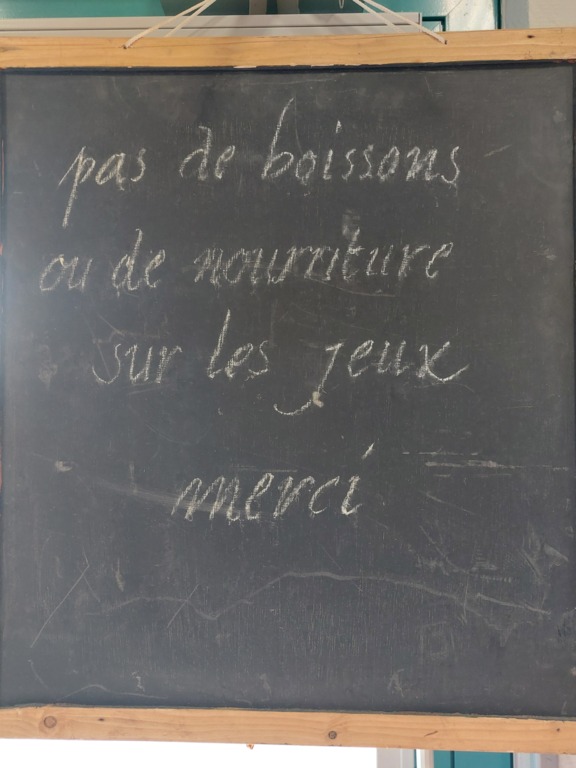 pas de boissons
ou de nourriture
sur les jeux
merci